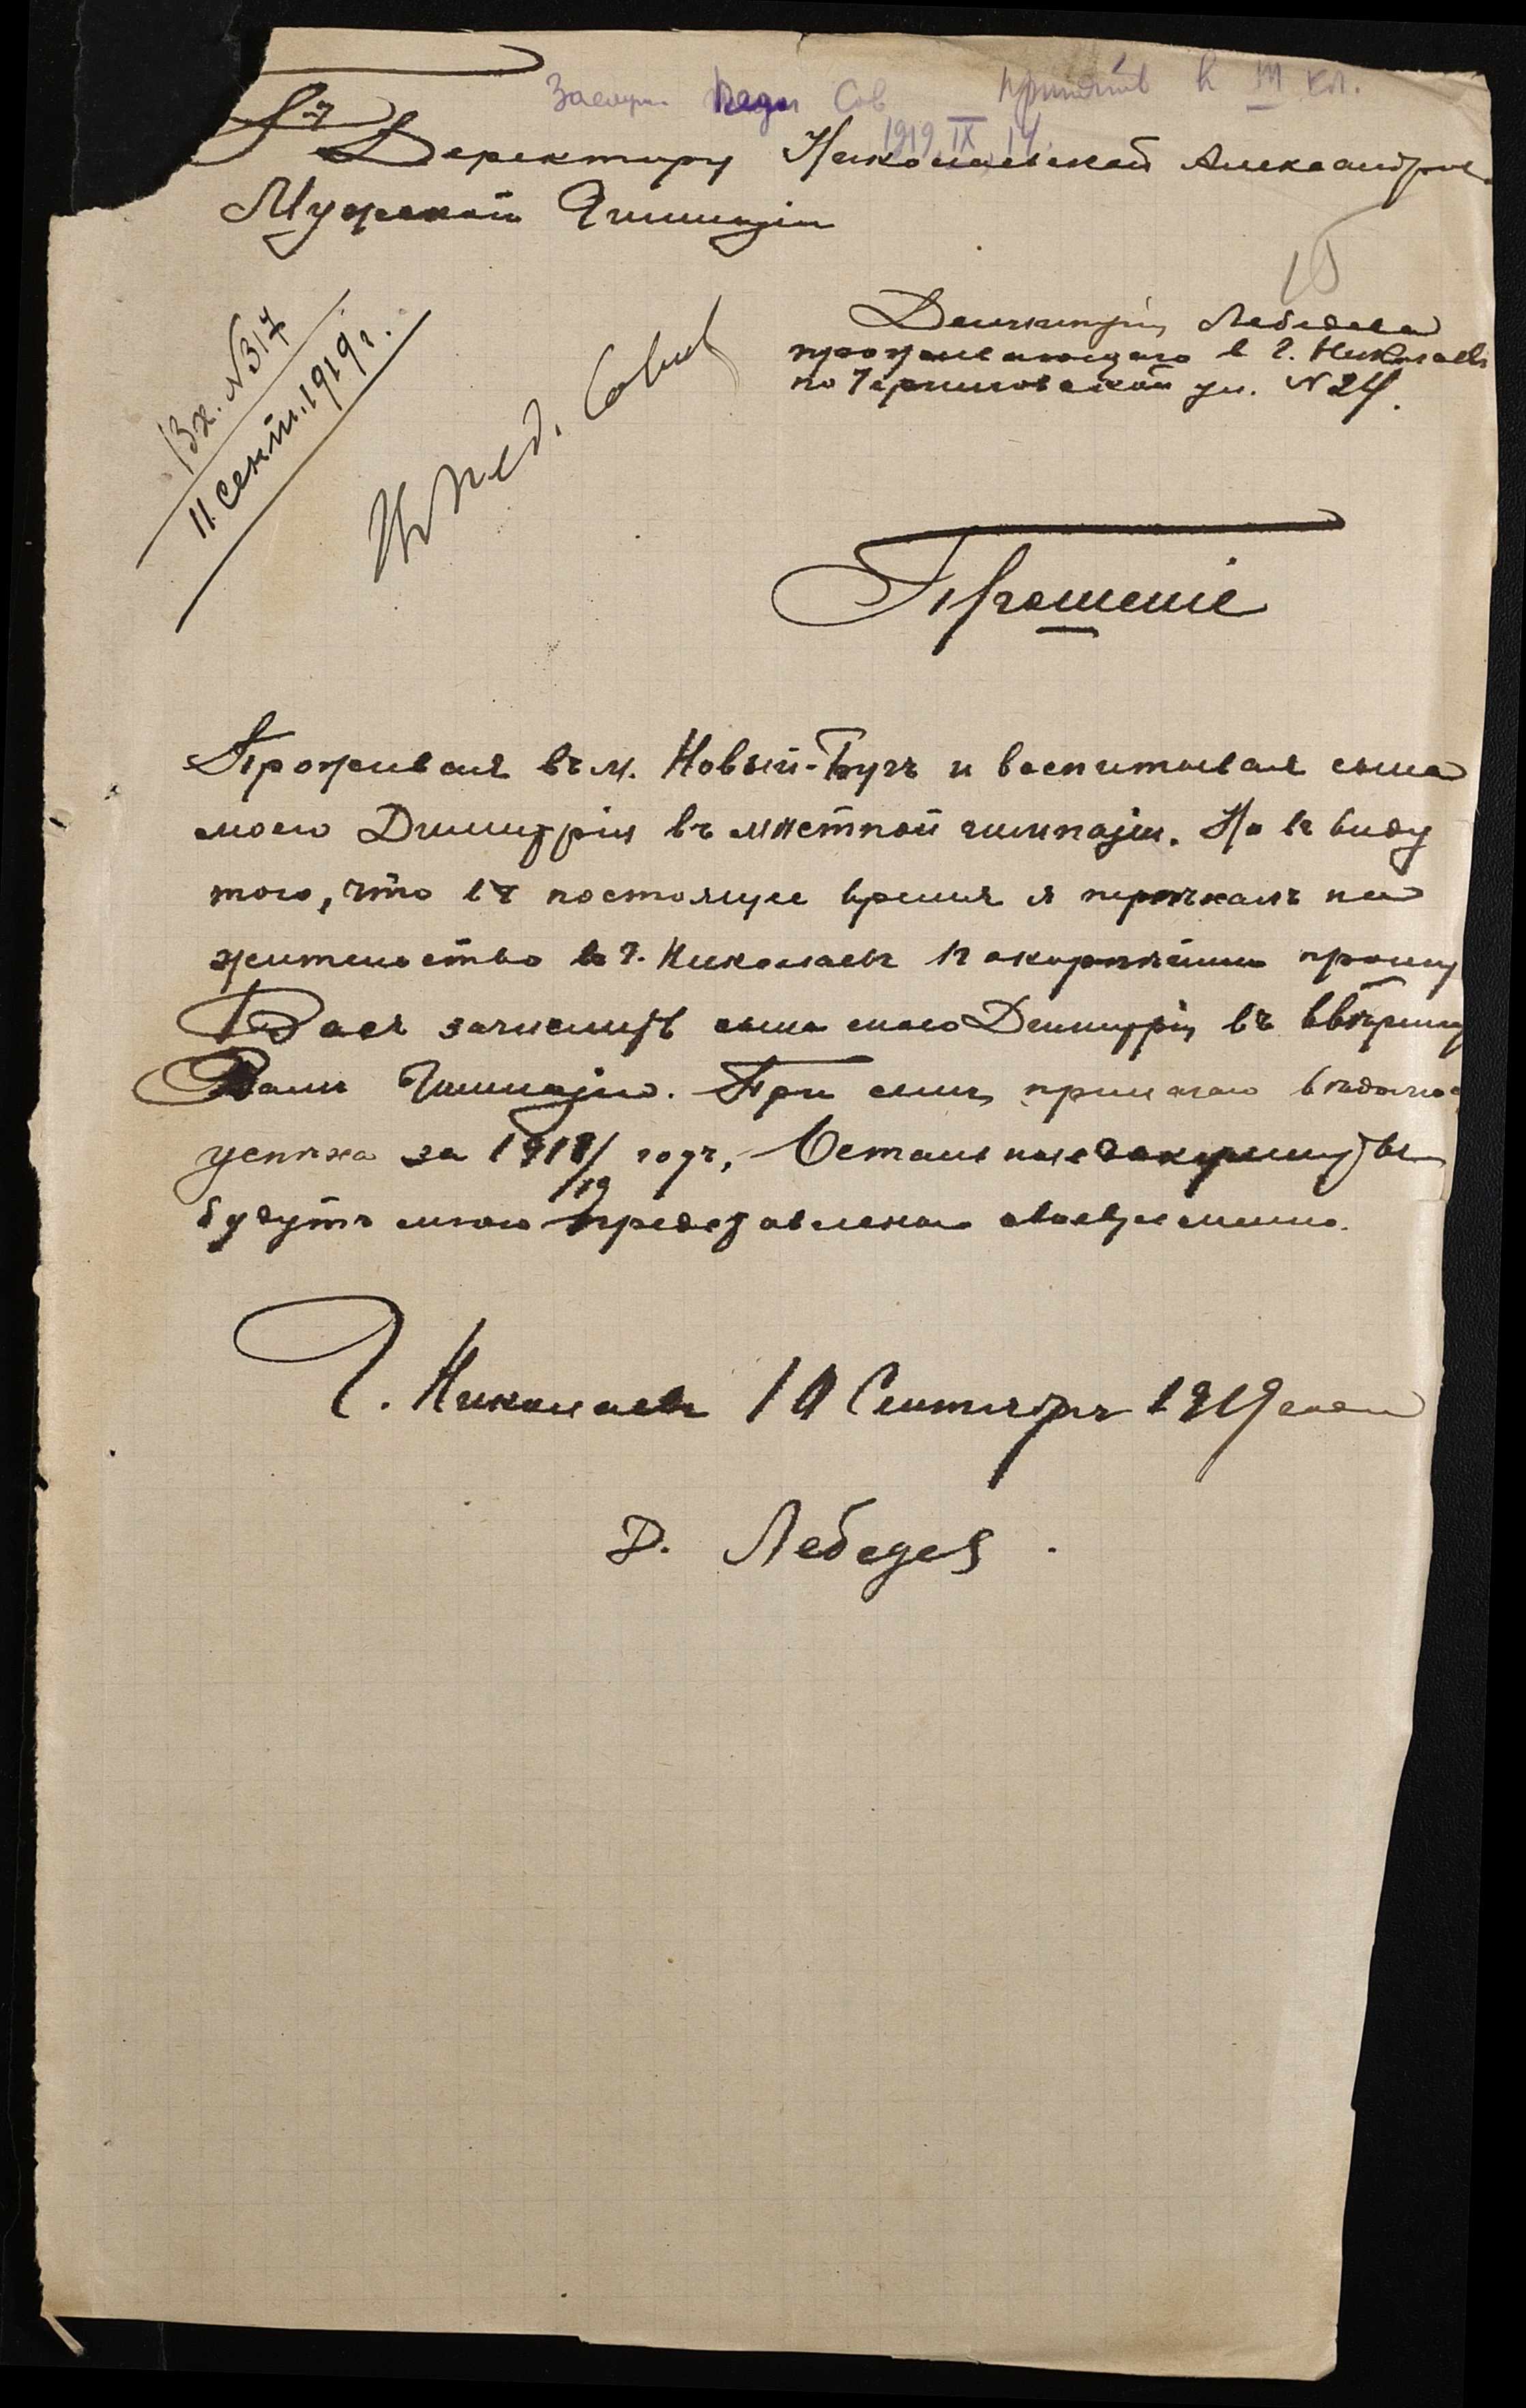 Педаг Сов принять в III кл.
1919 IX 14.
Г-ну
Деректору Николаевской Александров.
Мужской Гимназіи
15
Вх. №317
11 сент. 1919 г.
Въ пед. Совѣт
Димитрія Лебедева
проживающаго в г. Николаевѣ
по Черниговской ул. № 24.
Прошеніе
Проживая въ м. Новый-Бугъ и воспитывая сына
моего Димитрія въ мѣстной гимназіи. Но въ виду
того, что въ ностоящее время я переѣхалъ на
жительство въ г. Николаевъ покорнѣйше прошу
Васъ зачислить сына моего Димитрія въ ввѣренную
Вамъ Гимназію. При семъ прилагаю
успѣха за 1918/19 годъ, Остальные документы
будутъ мною представлены своевременно.
Г. Николаевъ 10 Сентября 1919 года
Д. Лебедев.